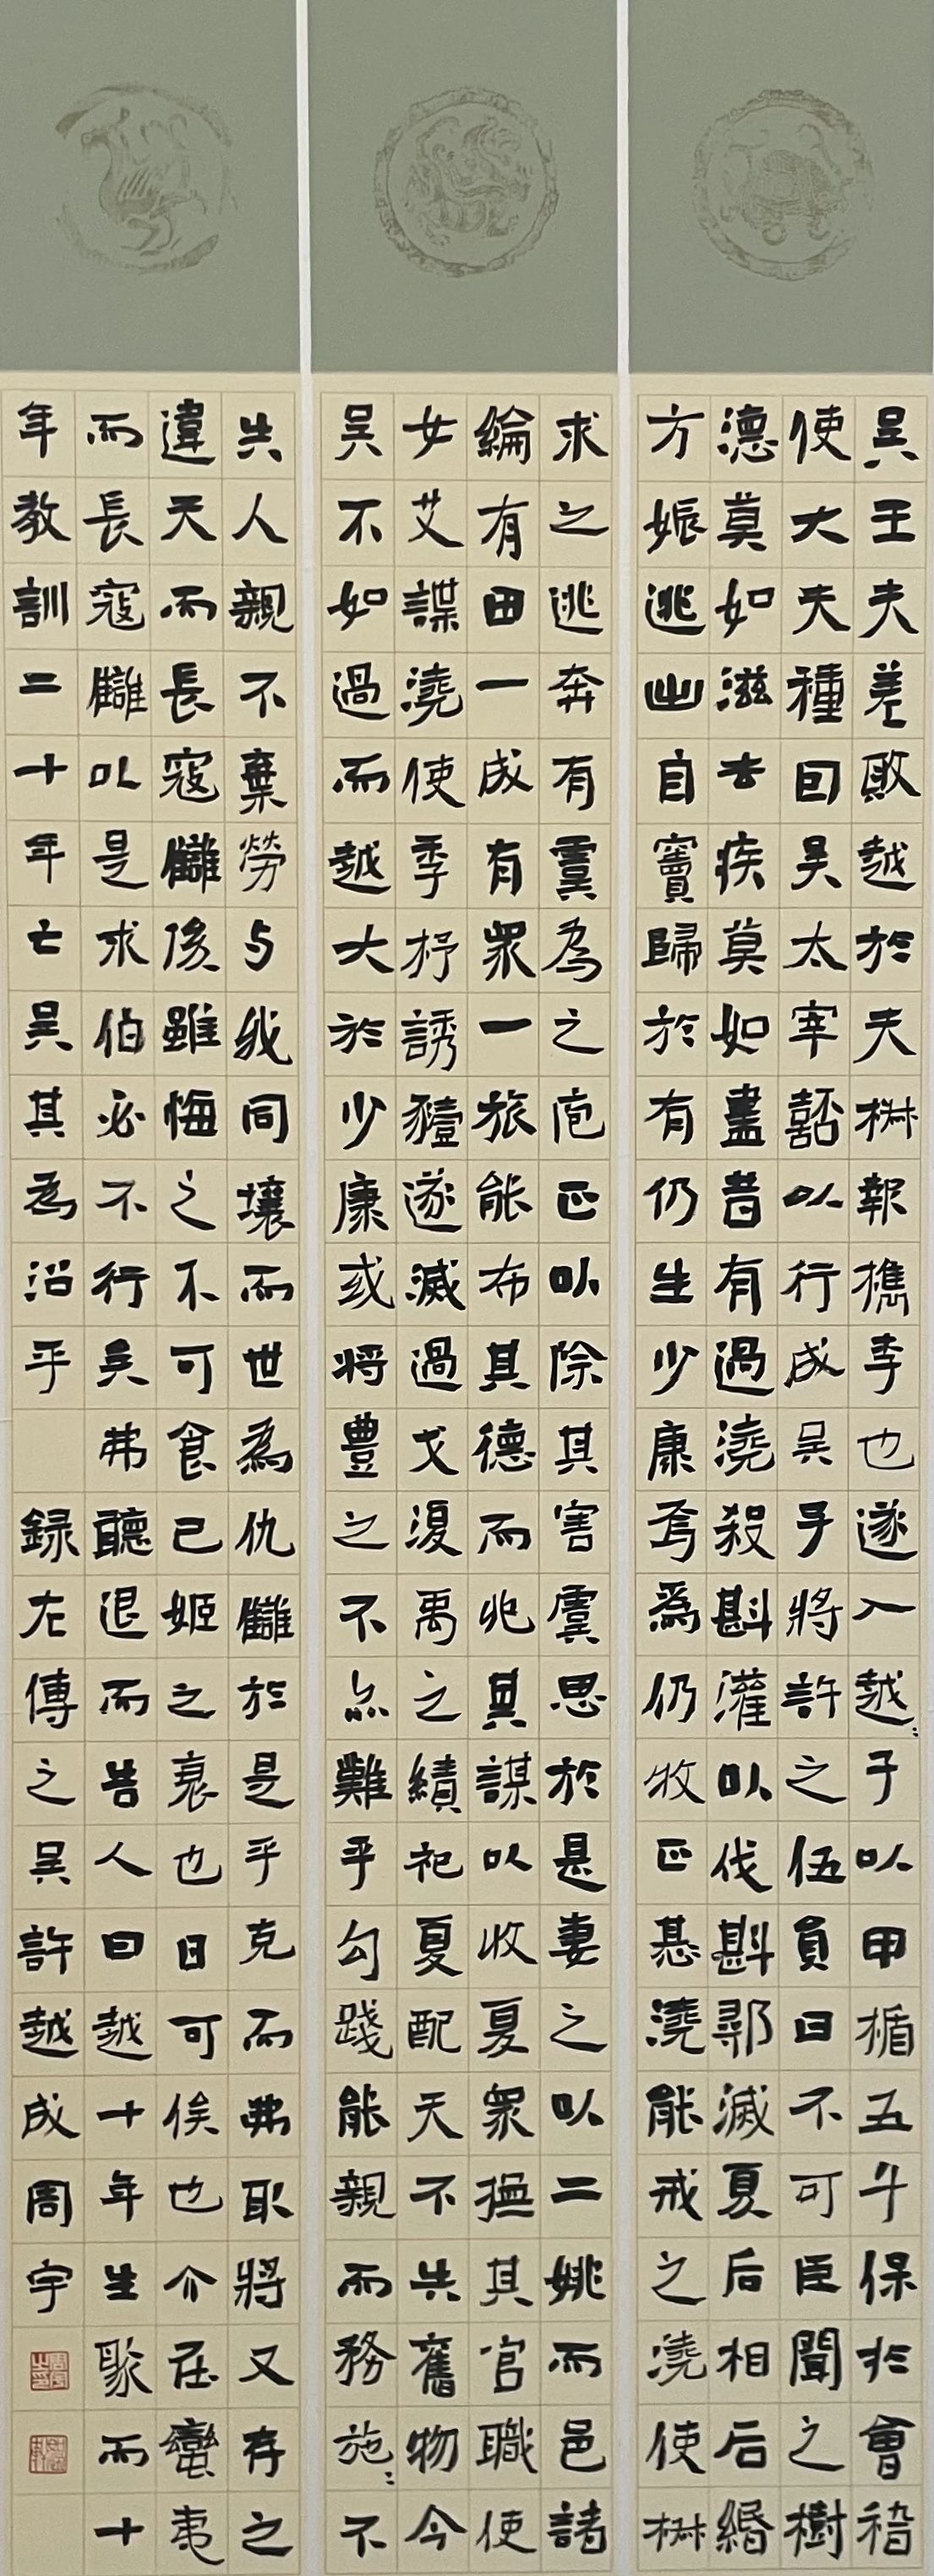 吳王夫差敗越於夫椒報檇李也遂入越〻子以甲楯五千保於會稽
使大夫種因吳太宰嚭以行成吳子將許之伍員曰不可臣聞之樹
德莫如滋去疾莫如盡昔有過澆殺斟灌以伐斟鄩滅夏后相后緡
方娠逃出自竇歸於有仍生少康焉為仍牧正惎澆能戒之澆使椒
求之逃奔有虞為之庖正以除其害虞思於是妻之以二姚而邑諸
綸有田一成有眾一旅能布其德而兆其謀以收夏眾撫其官職使
女艾諜澆使季杼誘豷遂滅過戈復禹之績祀夏配天不失舊物今
吳不如過而越大於少康或將豐之不亦難乎勾踐能親而務施〻不
失人親不棄勞与我同壤而世為仇讎於是乎克而弗取將又存之
違天而長寇讎後雖悔之不可食已姬之衰也日可俟也介在蠻夷
而長寇讎以是求伯必不行矣弗聽退而告人曰越十年生聚而十
年教訓二十年亡吳其為沼乎 録左傳之吳許越成周宇